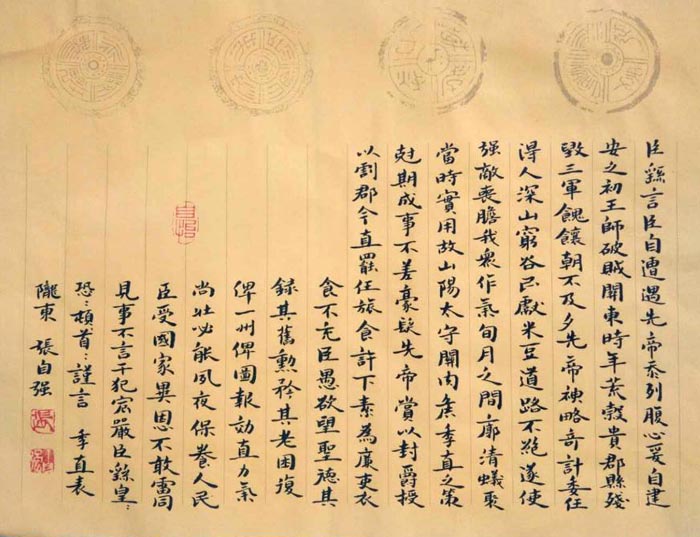 臣繇言臣自遭遇先帝忝列腹心爰自建
安之初王師破賊關東時年荒穀貴郡縣殘
毀三軍餽饟朝不及夕先帝神略奇計委任
得人深山窮谷民獻米豆道路不絶遂使
强敵喪膽我衆作氣旬月之間廓清蟻聚
當時實用故山陽太守關内侯季直之策
尅期成事不差豪髮先帝賞以封爵授
以割郡今直罷任旅食許下素為廉吏衣
食不充臣愚欲望聖德其
録其舊勳矜其老困復
俾一州俾圖報効直力氣
尚壯必能夙夜保養人民
臣受國家異恩不敢雷同
見事不言干犯宸嚴臣繇皇:
恐:頓首:謹言 季直表
隴東 張自强